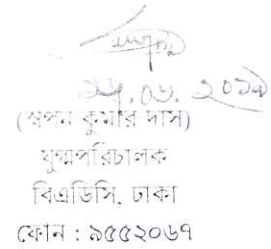 ২৭.০৬.২০১৯
(স্বপন কুমার দাস)
যুগ্মপরিচালক
বিএডিসি, ঢাকা
ফোন : ৯৫৫২০৬৭